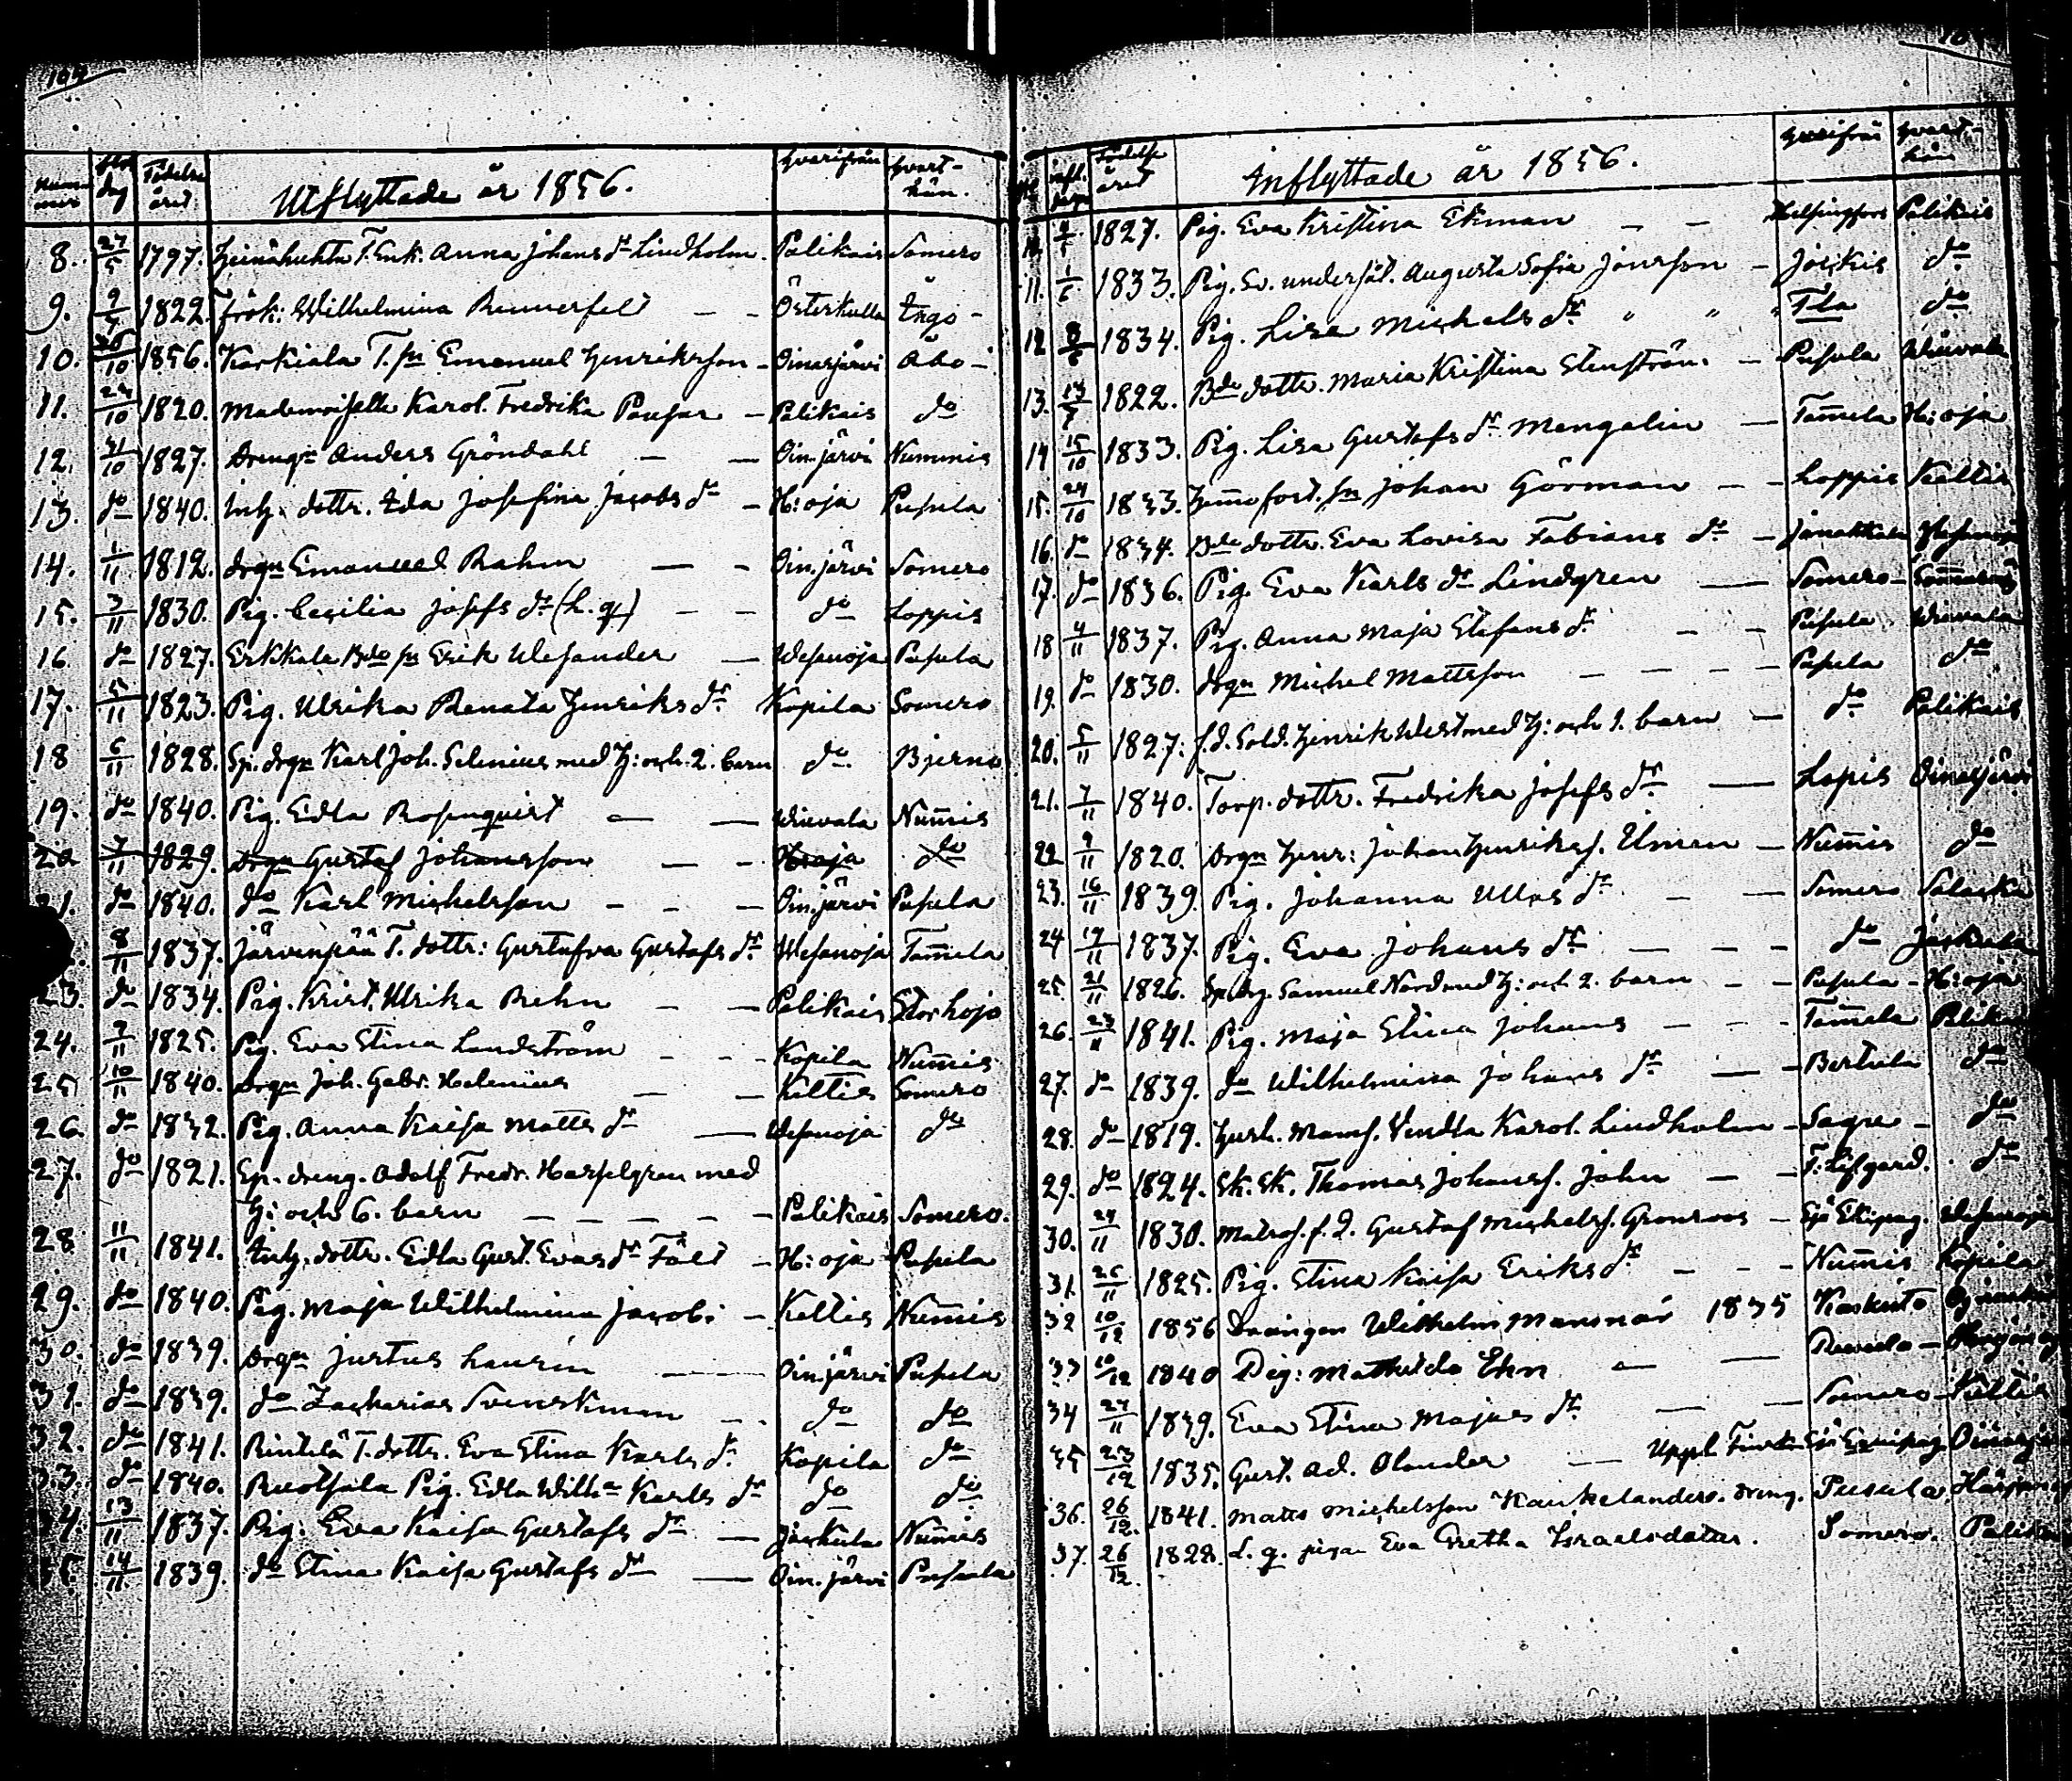 Nummer dag Födelse året Utflyttade år 1856. hvarifrån hvart-hän.
8. 27/5 1797. Heinähuhta T. Enk. Anna Johans dr Lindholm. Palikais Somero
9. 9/7 1822. Frök: Wilhelmina Rennerfelt — — Österkulla Ingo -
10. 26/10 1856. Karkiala T. sn Emanuel Henriksson - Oinasjärvi Åbo -
11. 27/10 1820. Mademoiselle Karol. Fredrika — Palikais do
12. 31/10 1827. Drengn Anders Gröndahl — — Oin.järvi Nummis
13. do 1840. Inh. dottr. Ida Josefina Jacobs dr — H:oja Pusula
14. 1/11 1812. drgn Emanuel Rahm — - Oin.järvi Somero
15. 3/11 1830. Pig. Cecilia Josefs dr (L. q.) — — do Loppis
16. do 1827. Erkkala Bde sn Erik Wesander — Wesanoja Pusula
17. 5/11 1823. Pig. Ulrika Renata Henriks dr. Kopila Somero
18 6/11 1828. Sp. drgn Karl Joh. Selenius med h: och 2. barn do Bjerno
19. do 1840. Pig. Edla Rosenqvist — — Wiuvala Num̄is
20. 7/11 1829. Drgn Gustaf Johansson — - H:oja do
21. do 1840. do Karl Michelsson - - — Oin.järvi Pusula
8/11 1837. Järvenpää T. dottr: Gustafva Gustafs dr. Wesanoja Tam̄ela
23. do 1834. Pig. Krist. Ulrika Rehn — — Palikais Storlojo
24. 7/11 1825. Pig. Eva Stina Landström - - - Kopila Num̄is
25 10/11 1840. Drgn Joh. Gabr. Helenius — — Keltis Somero
26. do 1832. Pig. Anna Kaisa Matts dr — Wesanoja do
27. do 1821. Sp. dreng. Adolf Fredr. Hasselgren med
h: och 6. barn — — — — — Palikais Somero.
28 11/11 1841. Inh. dottr. Edla Gust. Evas dr Fält — H:oja Pusula
29. do 1840. Pig. Maja Wilhelmina Jacobs. — Keltis Num̄is
30. do 1839. Drgn Justus Laurin — Oin.järvi Pusula
31. do 1839. do Zacharias Svenskman — - do do
32. do 1841. Rintelä T. dottr. Eva Stina Karls dr. Kopila do
33. do 1840. Ruotsala Pig. Edla Willa Karls dr do do
34. 13/11 1837. Pig. Eva Kaisa Gustafs dr — Jäskula Num̄is
14/11 1839. do Stina Kaisa Gustafs dr — Oin.järvi Pusula
Födelse året Inflyttade år 1856. hvarifrån hvart-hän
1827. Pig. Eva Kristina Ekman — — Helsingfors Palikais
11. 1/6 1833. Pig. Sv. undersåt. Augusta Sofia Jonsson — Jockis do.
12 8/6 1834. Pig. Lisa Michels dr. " " " do
13. 13/7 1822. Bde dottr. Maria Kristina Stenström. — Pusula Wiuvala
14 15/10 1833. Pig. Lisa Gustafs dr. Mengelin — Tam̄ela H:oja
15. 24/10 1833. sn Johan Görman — - Loppis Keltis
16. do 1834. Bde dottr. Eva Lovisa Fabians dr — Janakkala
17. do 1836. Pig. Eva Karls dr Lindgren — Somero -
18 4/11 1837. Pig. Anna Maja Stefans dr. — - Pusula Wiuvala
19. do 1830. drgn Michel Mattsson — — — - Pusula do.
20. 5/11 1827. f. d. Sold. Henrik West med h: och 1. barn — do Palikais
21. 7/11 1840. Torp. dottr. Fredrika Josefs dr. — Lopis Oinasjärvi
22 9/11 1820. Drgn Henr: Johan Henrikss. Elmen — Num̄is do
23. 16/11 1839. Pig. Johanna Ullas dr — — Somero Salaska
24 17/11 1837. Pig. Eva Johans dr — - - do Jäskula
25. 21/11 1826. Sp. drg. Samuel Nord med h: och 2. barn - - Pusula - H:oja
26. 23/11 1841. Pig. Maja Stina Johans — - - Tam̄ela
27. do 1839. do Wilhelmina Johans dr. — — Bertula do
28. do 1819. Hush. Mams. Vendla Karol. Lindholm - Sagu - do
29. do 1824. Sk. Sk. Thomas Johanss. John — — T: Lifgard. do
30. 24/11 1830. Matros. f. d. Gustaf Michelss. Grönroos — Sjö Ekipag. Wesanoja
31. 25/11 1825. Pig. Stina Kaisa Eriks dr — - - Num̄is Kopila
32 10/12 1856 Drängen Wilhelm 1835
33 10/12 1840 Pig: Mathilda Ehn — —
34 27/11 1839. Eva Stina Majas dr. — — Somero Keltis
35 23/12 1835. Gust. Ad. Olander — Sjö Equipag.
36. 26/12. 1841. Matts Michelsson Kaukelanders. dreng. Pusula.
37. 26/12. 1828. L. q. pigan Eva Gretha Israelsdotter. Somero.